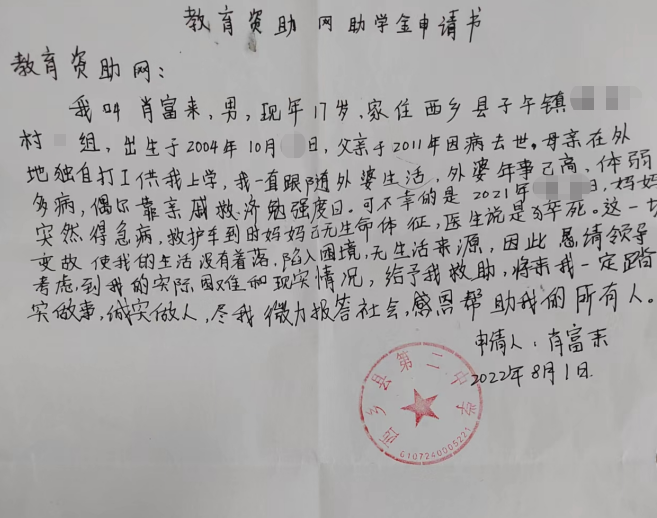 教育资助网助学金申请书
教育资助网：
我叫肖富来，男，现年17岁，家住西乡县子午镇
村 组，出生于2004年10月 日，父亲于2011年因病去世。母亲在外
地独自打工供我上学，我一直跟随外婆生活，外婆年事已高、体弱
多病，偶尔靠亲戚救济勉强度日。可不幸的是2021年 日，妈妈
突然得急病，救护车到时妈妈已无生命体征，医生说是猝死。这一切
变故使我的生活没有着落，陷入困境，无生活来源，因此恳请领导
考虑到我的实际困难和现实情况，给予我救助，将来我一定踏
实做事，诚实做人，尽我微力报答社会，感恩帮助我的所有人。
申请人：肖富来
2022年8月1日
西乡县第二中学
6107240005221